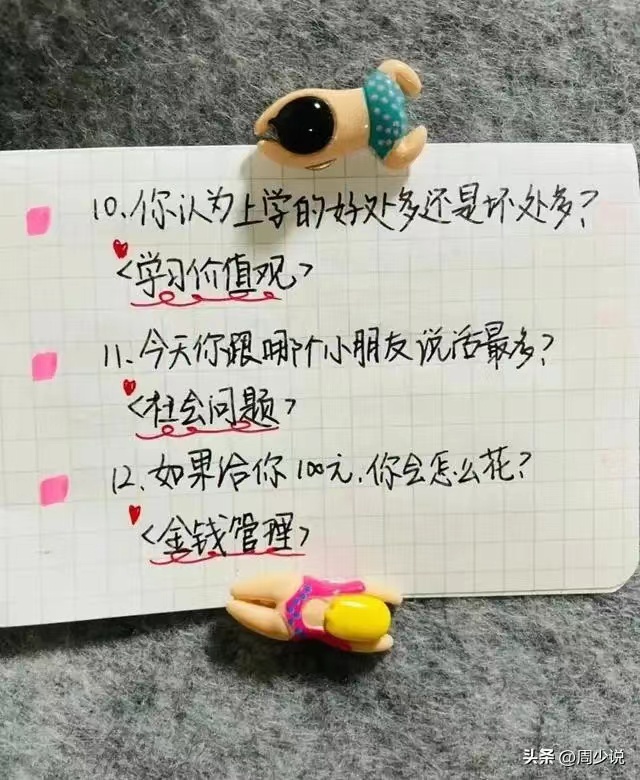 10、你认为上学的好处多还是坏处多？
<学习价值观>
11、今天你跟哪个小朋友说话最多？
<社会问题>
12、如果给你100元，你会怎么花？
<金钱管理>
头条 @周少说